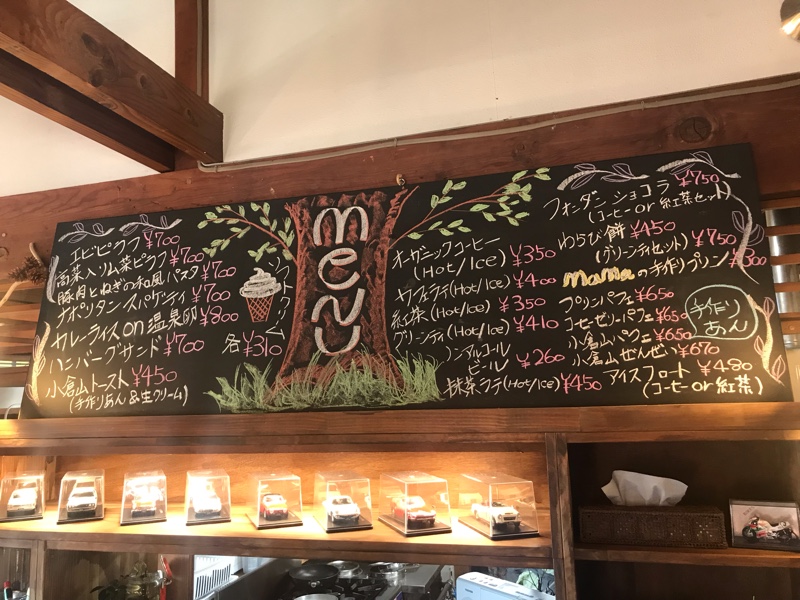 エビピラフ ¥700
高菜入り山菜ピラフ ¥700
豚肉とねぎの和風パスタ ¥700
ナポリタンスパゲティ ¥700
カレーライス on 温泉卵 ¥800
ハンバーグサンド ¥700
小倉山トースト ¥450
(手作りあん &生クリーム)
ソフトクリーム
各 ¥310
menu
オーガニックコーヒー
(Hot/Ice) ¥350
カフェラテ(Hot/Ice) ¥400
紅茶(Hot/Ice) ¥350
グリーンティ(Hot/Ice) ¥410
ノンアルコール
ビール ¥260
抹茶ラテ(Hot/Ice) ¥450
フォンダンショコラ ¥750
(コーヒー or 紅茶セット)
わらび餅 ¥450
(グリーンティセット) ¥750
mamaの手作りプリン ¥300
プリンパフェ ¥650
コーヒーゼリーパフェ ¥650
小倉山パフェ ¥650
小倉山ぜんざい ¥670
アイスフロート ¥480
(コーヒー or 紅茶)
手作り
あん